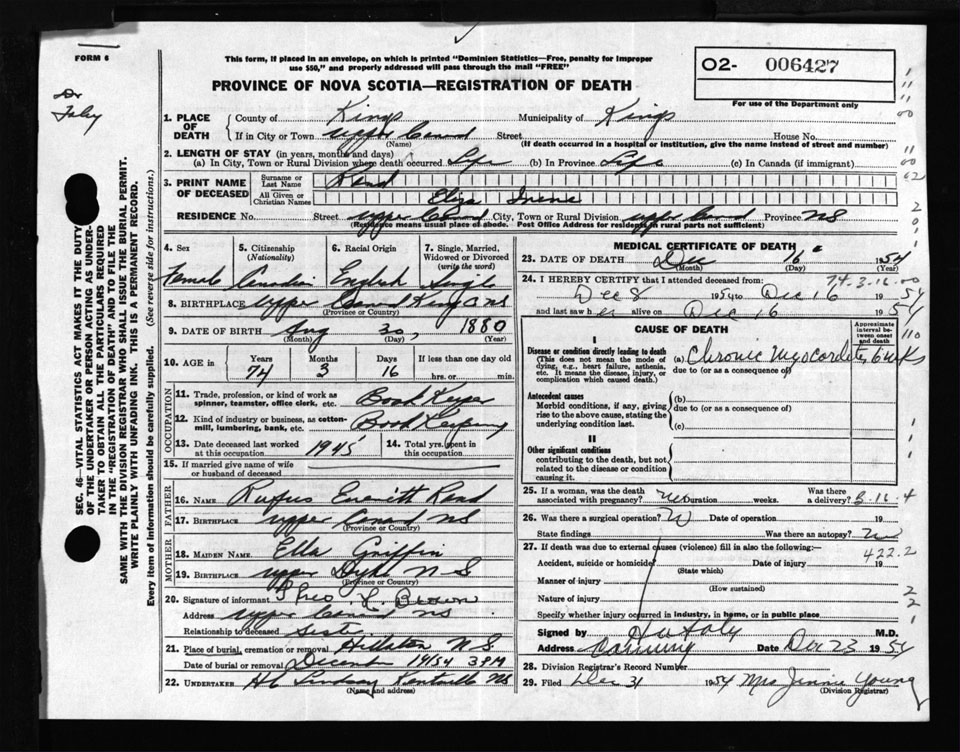 FORM 6
This form, if placed in an envelope, on which is printed "Dominion Statistics—Free, penalty for improper
use $50," and properly addressed will pass through the mail "FREE"
O2- 006427
PROVINCE OF NOVA SCOTIA—REGISTRATION OF DEATH
For use of the Department only
Dr
Foley
SEC. 46—VITAL STATISTICS ACT MAKES IT THE DUTY
OF THE UNDERTAKER OR PERSON ACTING AS UNDER-
TAKER TO OBTAIN ALL THE PARTICULARS REQUIRED
IN THE "REGISTRATION OF DEATH" AND TO FILE THE
SAME WITH THE DIVISION REGISTRAR WHO SHALL ISSUE THE BURIAL PERMIT.
WRITE PLAINLY WITH UNFADING INK. THIS IS A PERMANENT RECORD.
Every item of information should be carefully supplied. (See reverse side for instructions.)
1. PLACE OF DEATH
County of Kings Municipality of Kings
If in City or Town Upper Canard Street House No.
(Name) (If death occurred in a hospital or institution, give the name instead of street and number)
2. LENGTH OF STAY (in years, months and days)
(a) In City, Town or Rural Division where death occurred Life (b) In Province Life (c) In Canada (if immigrant)
3. PRINT NAME OF DECEASED
Surname or Last Name Rand
All Given or Christian Names Eliza Irene
RESIDENCE No. Street Upper Canard City, Town or Rural Division Upper Canard Province NS
(Residence means usual place of abode. Post Office Address for residents in rural parts not sufficient)
4. Sex 5. Citizenship (Nationality) 6. Racial Origin 7. Single, Married, Widowed or Divorced (write the word)
Female Canadian English Single
8. BIRTHPLACE Upper Canard Kings Co NS
(Province or Country)
9. DATE OF BIRTH Aug 30, 1880
(Month) (Day) (Year)
10. AGE in Years Months Days If less than one day old
74 3 16 hrs. or min.
OCCUPATION
11. Trade, profession, or kind of work as spinner, teamster, office clerk, etc. Book Keeper
12. Kind of industry or business, as cotton-mill, lumbering, bank, etc. Book Keeping
13. Date deceased last worked at this occupation 1945 14. Total yrs. spent in this occupation
15. If married give name of wife or husband of deceased
FATHER
16. NAME Rufus Everitt Rand
17. BIRTHPLACE Upper Canard NS
(Province or Country)
MOTHER
18. MAIDEN NAME Ella Griffin
19. BIRTHPLACE Upper Dyke N S
(Province or Country)
20. Signature of informant L. Brown
Address Upper Canard NS
Relationship to deceased Sister
21. Place of burial, cremation or removal Hillaton N S
Date of burial or removal December 19/54 3 PM
22. UNDERTAKER Lindsay Kentville NS
(Name and address)
MEDICAL CERTIFICATE OF DEATH
23. DATE OF DEATH Dec 16 1954
(Month) (Day) (Year)
74.3.16.00
24. I HEREBY CERTIFY that I attended deceased from:
Dec 8 1954 to Dec 16 1954
and last saw her alive on Dec 16 1954
CAUSE OF DEATH
Approximate interval between onset and death
I
Disease or condition directly leading to death (a) Chronic Myocarditis 6 wks
(This does not mean the mode of dying, e.g., heart failure, asthenia, etc. It means the disease, injury, or complication which caused death.)
due to (or as a consequence of)
Antecedent causes
Morbid conditions, if any, giving rise to the above cause, stating the underlying condition last.
(b)
due to (or as a consequence of)
(c)
II
Other significant conditions
contributing to the death, but not related to the disease or condition causing it.
25. If a woman, was the death associated with pregnancy? No Duration weeks. Was there a delivery? B-16-4
26. Was there a surgical operation? N Date of operation 19
State findings Was there an autopsy? No
27. If death was due to external causes (violence) fill in also the following:— 422.2
Accident, suicide or homicide Date of injury 19
(State which)
Manner of injury
(How sustained)
Nature of injury
Specify whether injury occurred in industry, in home, or in public place
Signed by Foley M.D.
Address Canning Date Dec 23 1954
28. Division Registrar's Record Number
29. Filed Dec 31 1954 Mrs Jennie Young
(Division Registrar)